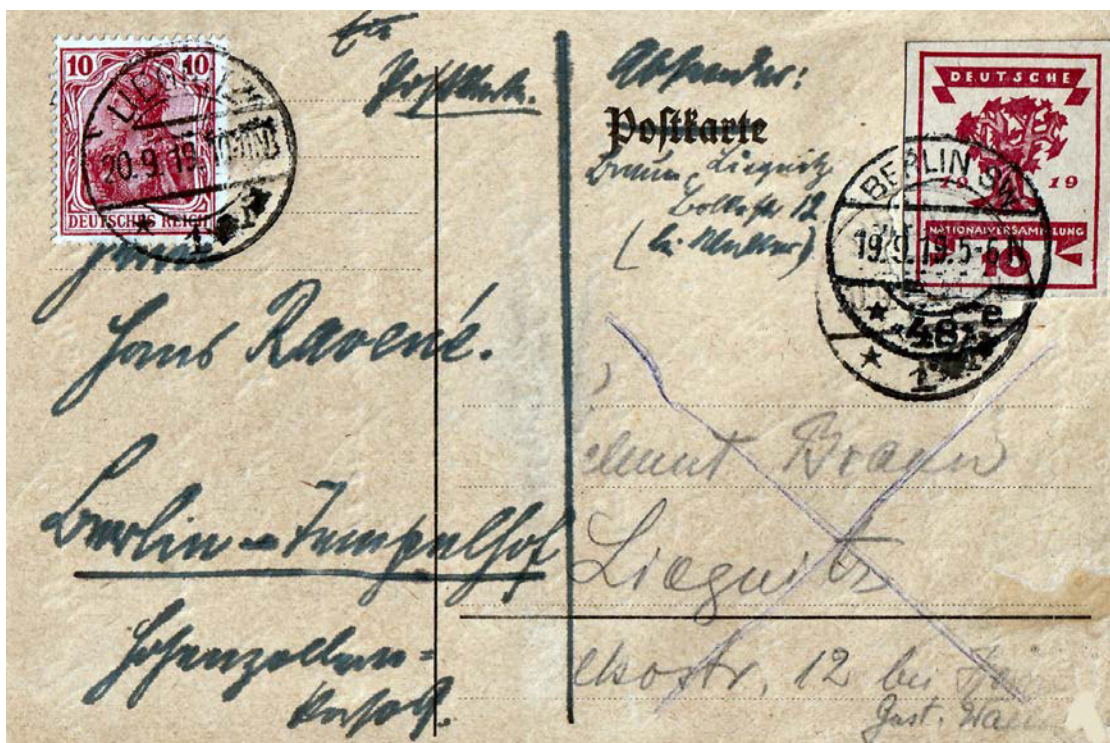 10 10
DEUTSCHES REICH
20.9.19
Postkarte.
Herrn
Hans Ravené.
Berlin-Tempelhof
Hohenzollern=
Absender:
Postkarte
Braun, Liegnitz
12
DEUTSCHE
19 19
NATIONALVERSAMMLUNG
10
BERLIN SW
19.9.19.5-6N
48 e
Braun
Liegnitz
12 bei
Gust.